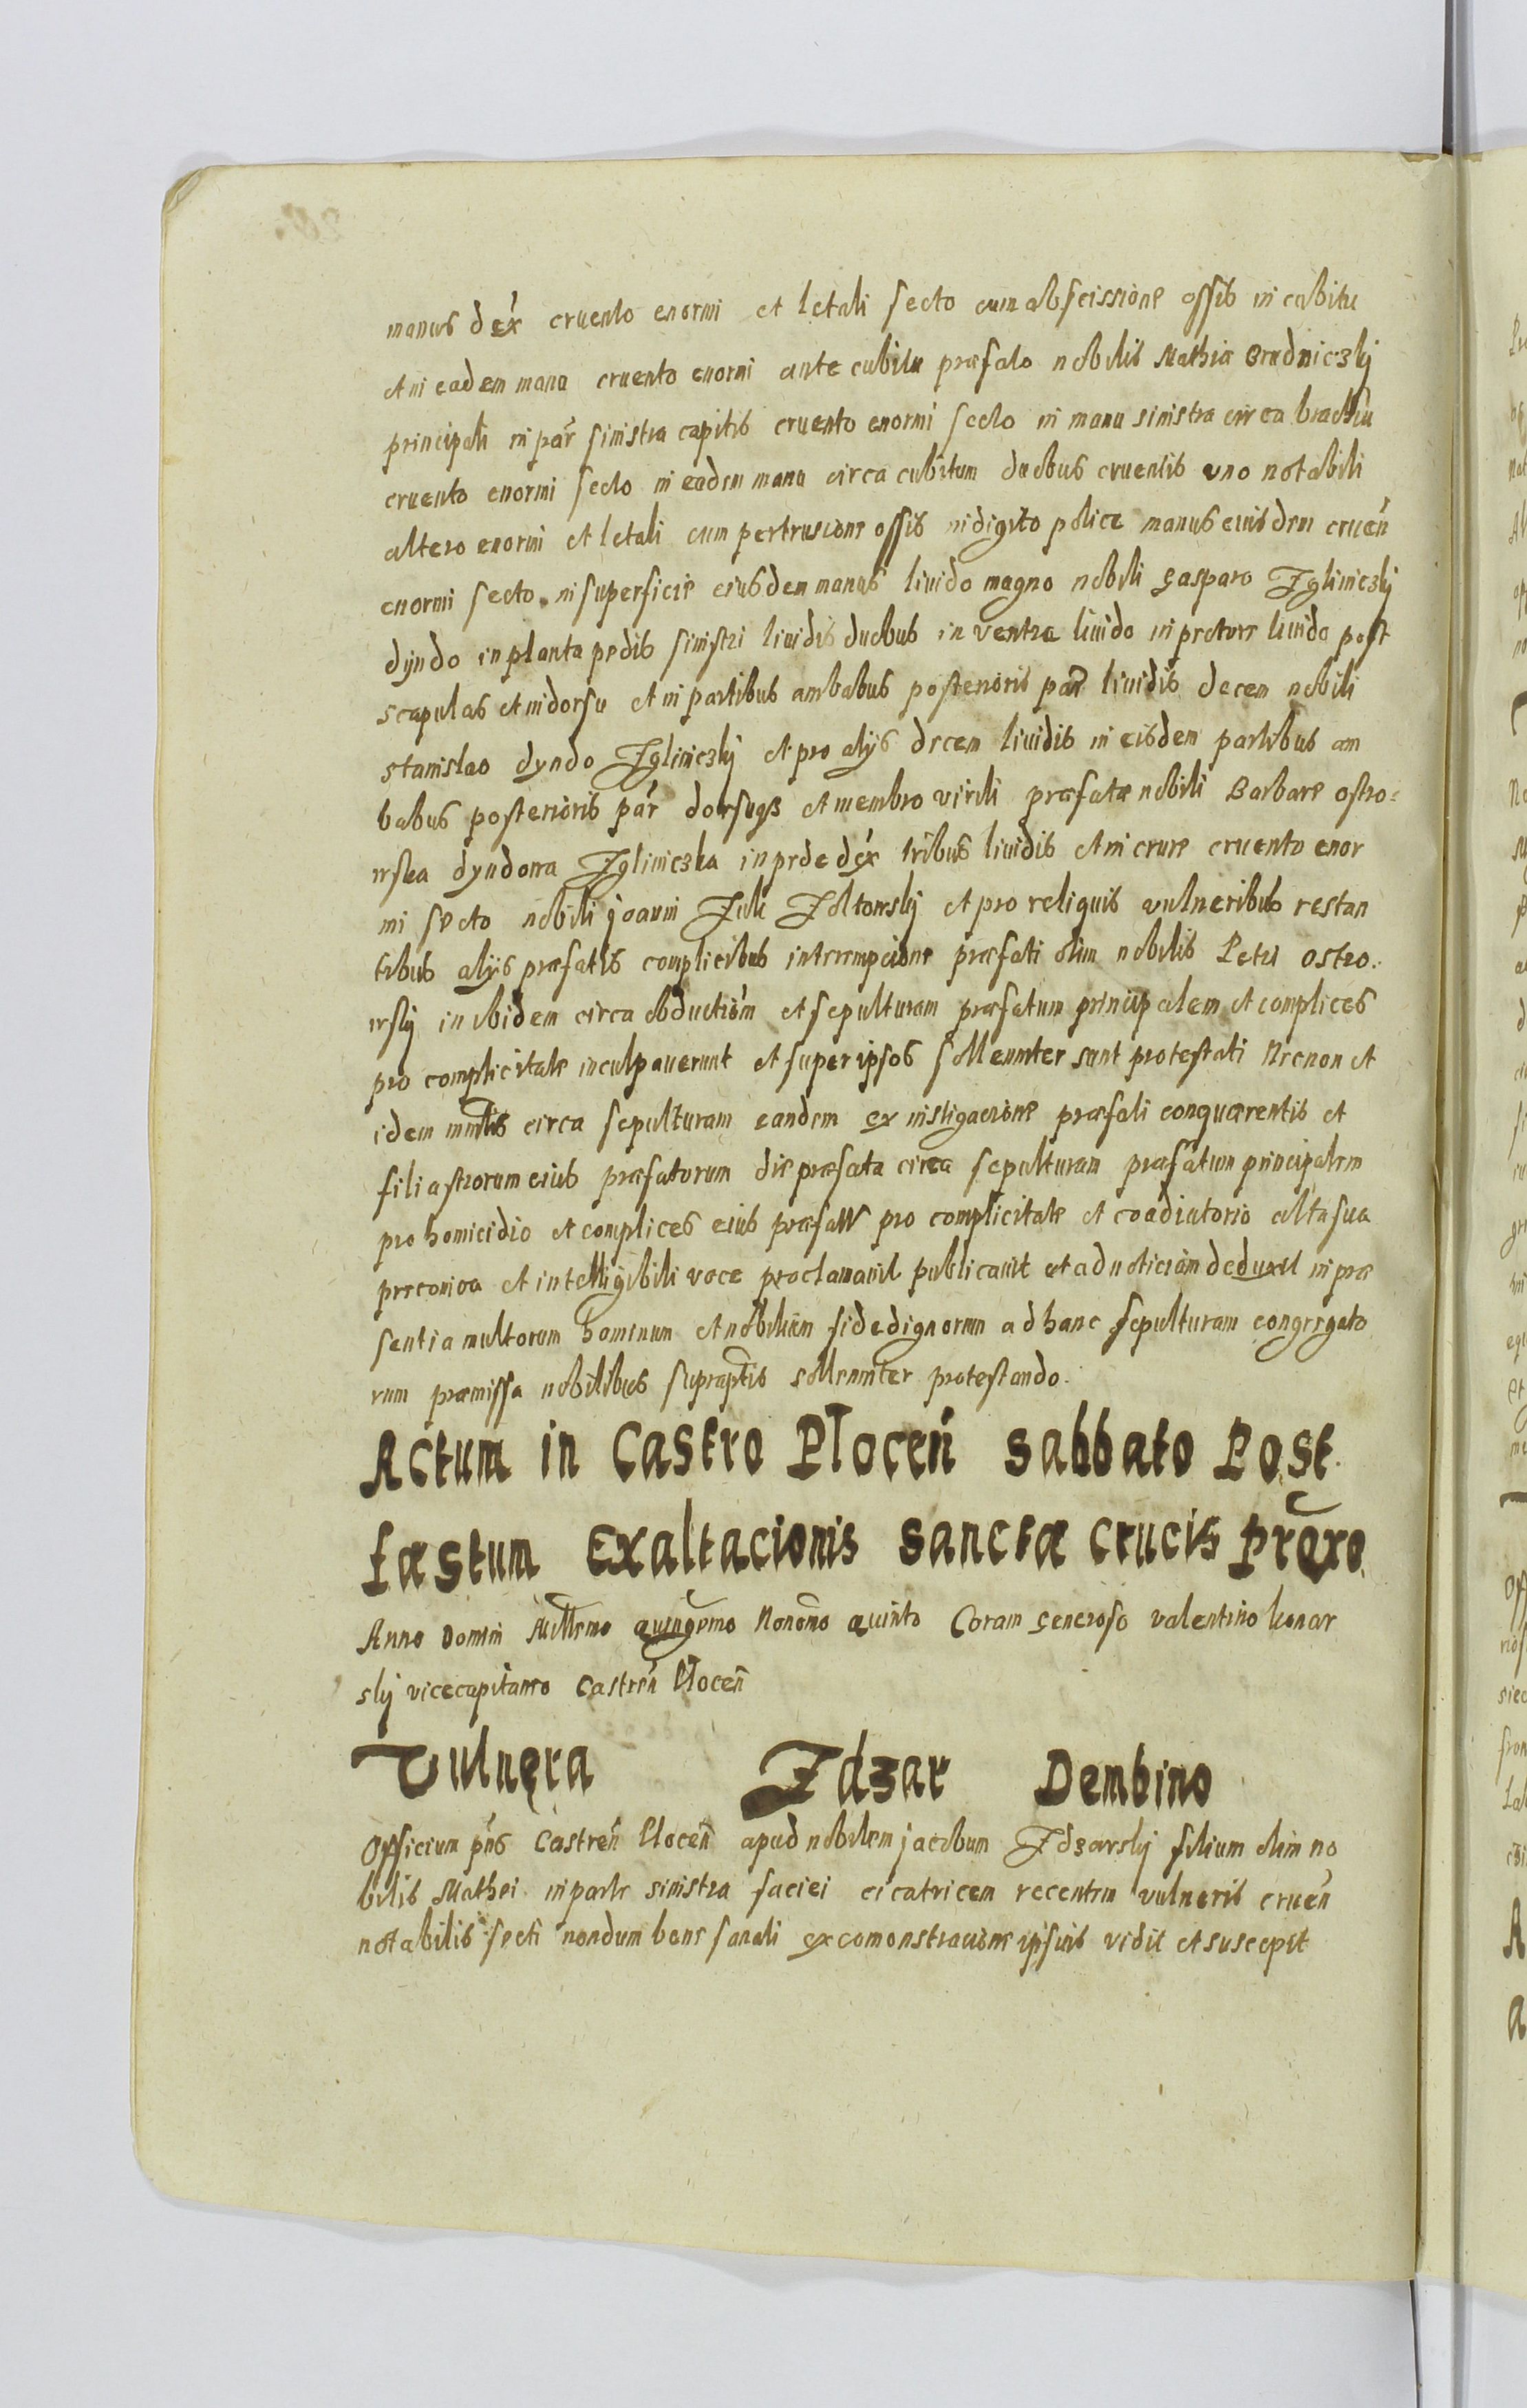 manus dex cruento enormi et letali secto cum abscissione ossis in cubitu
et in eadem manu cruento enormi ante cubitu præfato nobilis Mathiæ Brudniczky
principali in par sinistra capitis cruento enormi secto in manu sinistra circa brachiu
cruento enormi secto in eadem manu circa cubitum duobus cruentis uno notabili
altero enormi et letali cum pertrusione ossis in digito police manus eiusdem cruen
enormi secto in superficie eiusdem manus liuido magno nobili Gasparo Zgliniczky
dyndo in planta pedis sinistri liuidis duobus in ventre liuido in pectore liuido post
scapulas et in dorsu et in partibus ambabus posterioris par liuidis decem nobili
stanislao dyndo Zgliniczky et pro alijs decem liuidis in eisdem partibus am
babus posterioris par dorsuqz et membro virili præfatæ nobili Barbare ostro=
wska dyndowa Zgliniczka in pede dex tribus liuidis et in crure cruento enor
mi secto nobili joanni Zoltowsky et pro reliquis vulneribus restan
tibus alijs præfatis complicibus interempcione præfati olim nobilis Petri ostro.
wsky inibidem circa obductiom et sepulturam præfatum principalem et complices
pro complicitate inculpauerunt et super ipsos sollemniter sunt protestati Necnon et
idem mnlis circa sepulturam eandem ex instigacione præfati conquærentis et
filiastrorum eius præfatorum die præfata circa sepulturam præfatum principalem
pro homicidio et complices eius præfatos pro complicitate et coadiutorio alta sua
preconica et intelligibili voce proclamauit publicauit et ad noticiam deduxit in præ
sentia multorum hominum et nobilium fidedignorum ad hanc sepulturam congregato
rum præmissa nobilibus suprapts sollemniter protestando.
Actum in Castro Plocen sabbato Post
fæstum Exaltacionis sanctæ crucis Proxo.
Anno Domini Millemo quingemo Nonomo quinto Coram Generoso valentino konar
sky vicecapitaneo Castren Plocen
Vulnera Idzar Dembino
Officium pns Castren Plocen apud nobilem jacobum Idzarsky filium olim no
bilis Mathei in parte sinistra faciei cicatricem recentem vulneris cruen
notabilis secti nondum bene sanati ex comonstracione ipsius vidit et suscepit